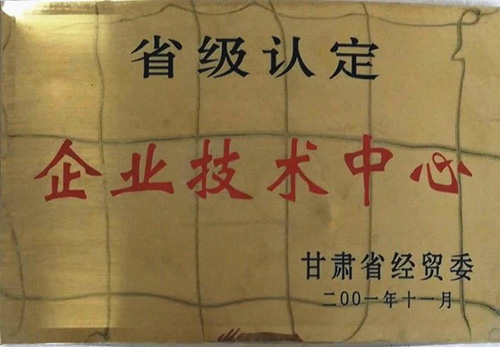 省级认定
企业技术中心
甘肃省经贸委
二00一年十一月